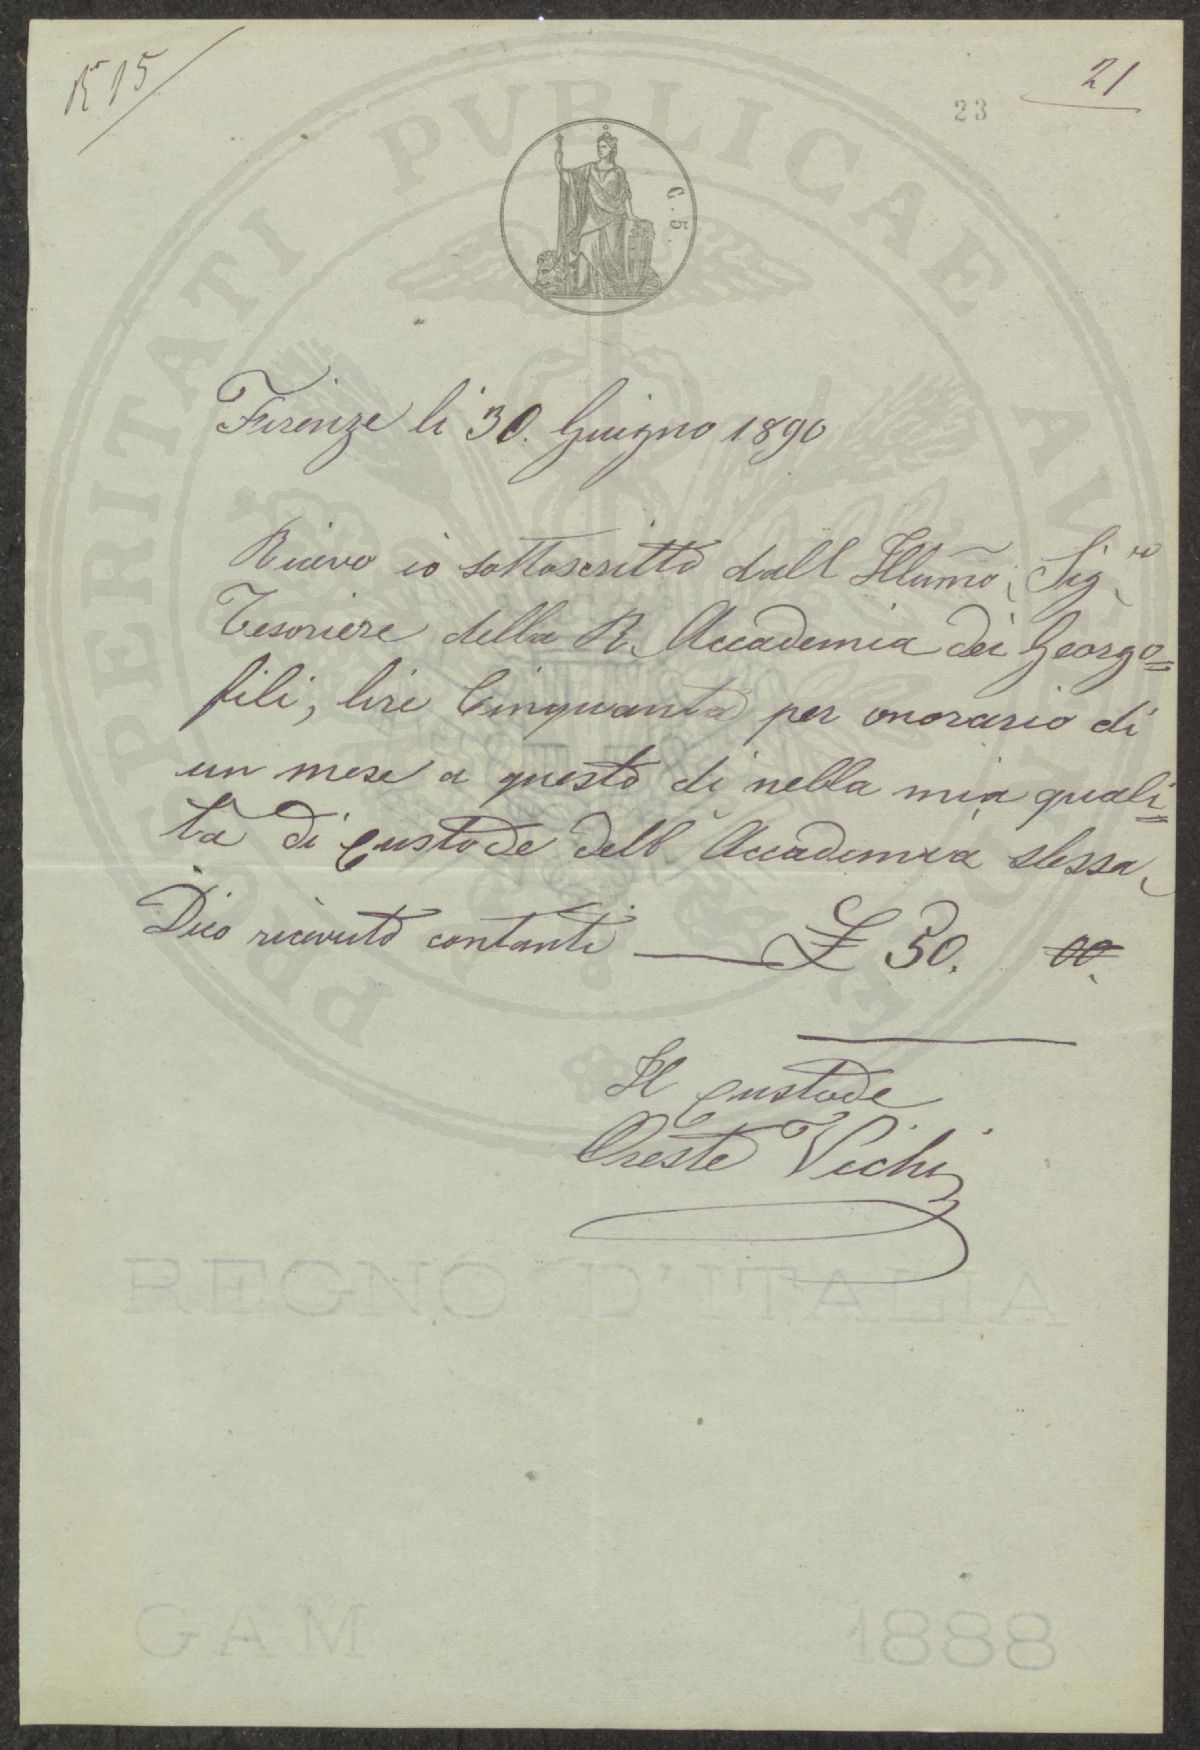 R° 15
21
23
C. 5.
PROSPERITATI PVBLICAE AVGENDAE
Firenze li 30. Giugno 1890
Ricevo io sottoscritto dall Illumo, Sigre
Tesoriere della R. Accademia dei Georgo=
fili, lire Cinquanta per onorario di
un mese a questo di nella mia quali=
tà di Custode dell' Accademia stessa,
Dico ricevuto contanti £ 50. 00.
Il Custode
Oreste Vichi
REGNO D'ITALIA
GAM 1888